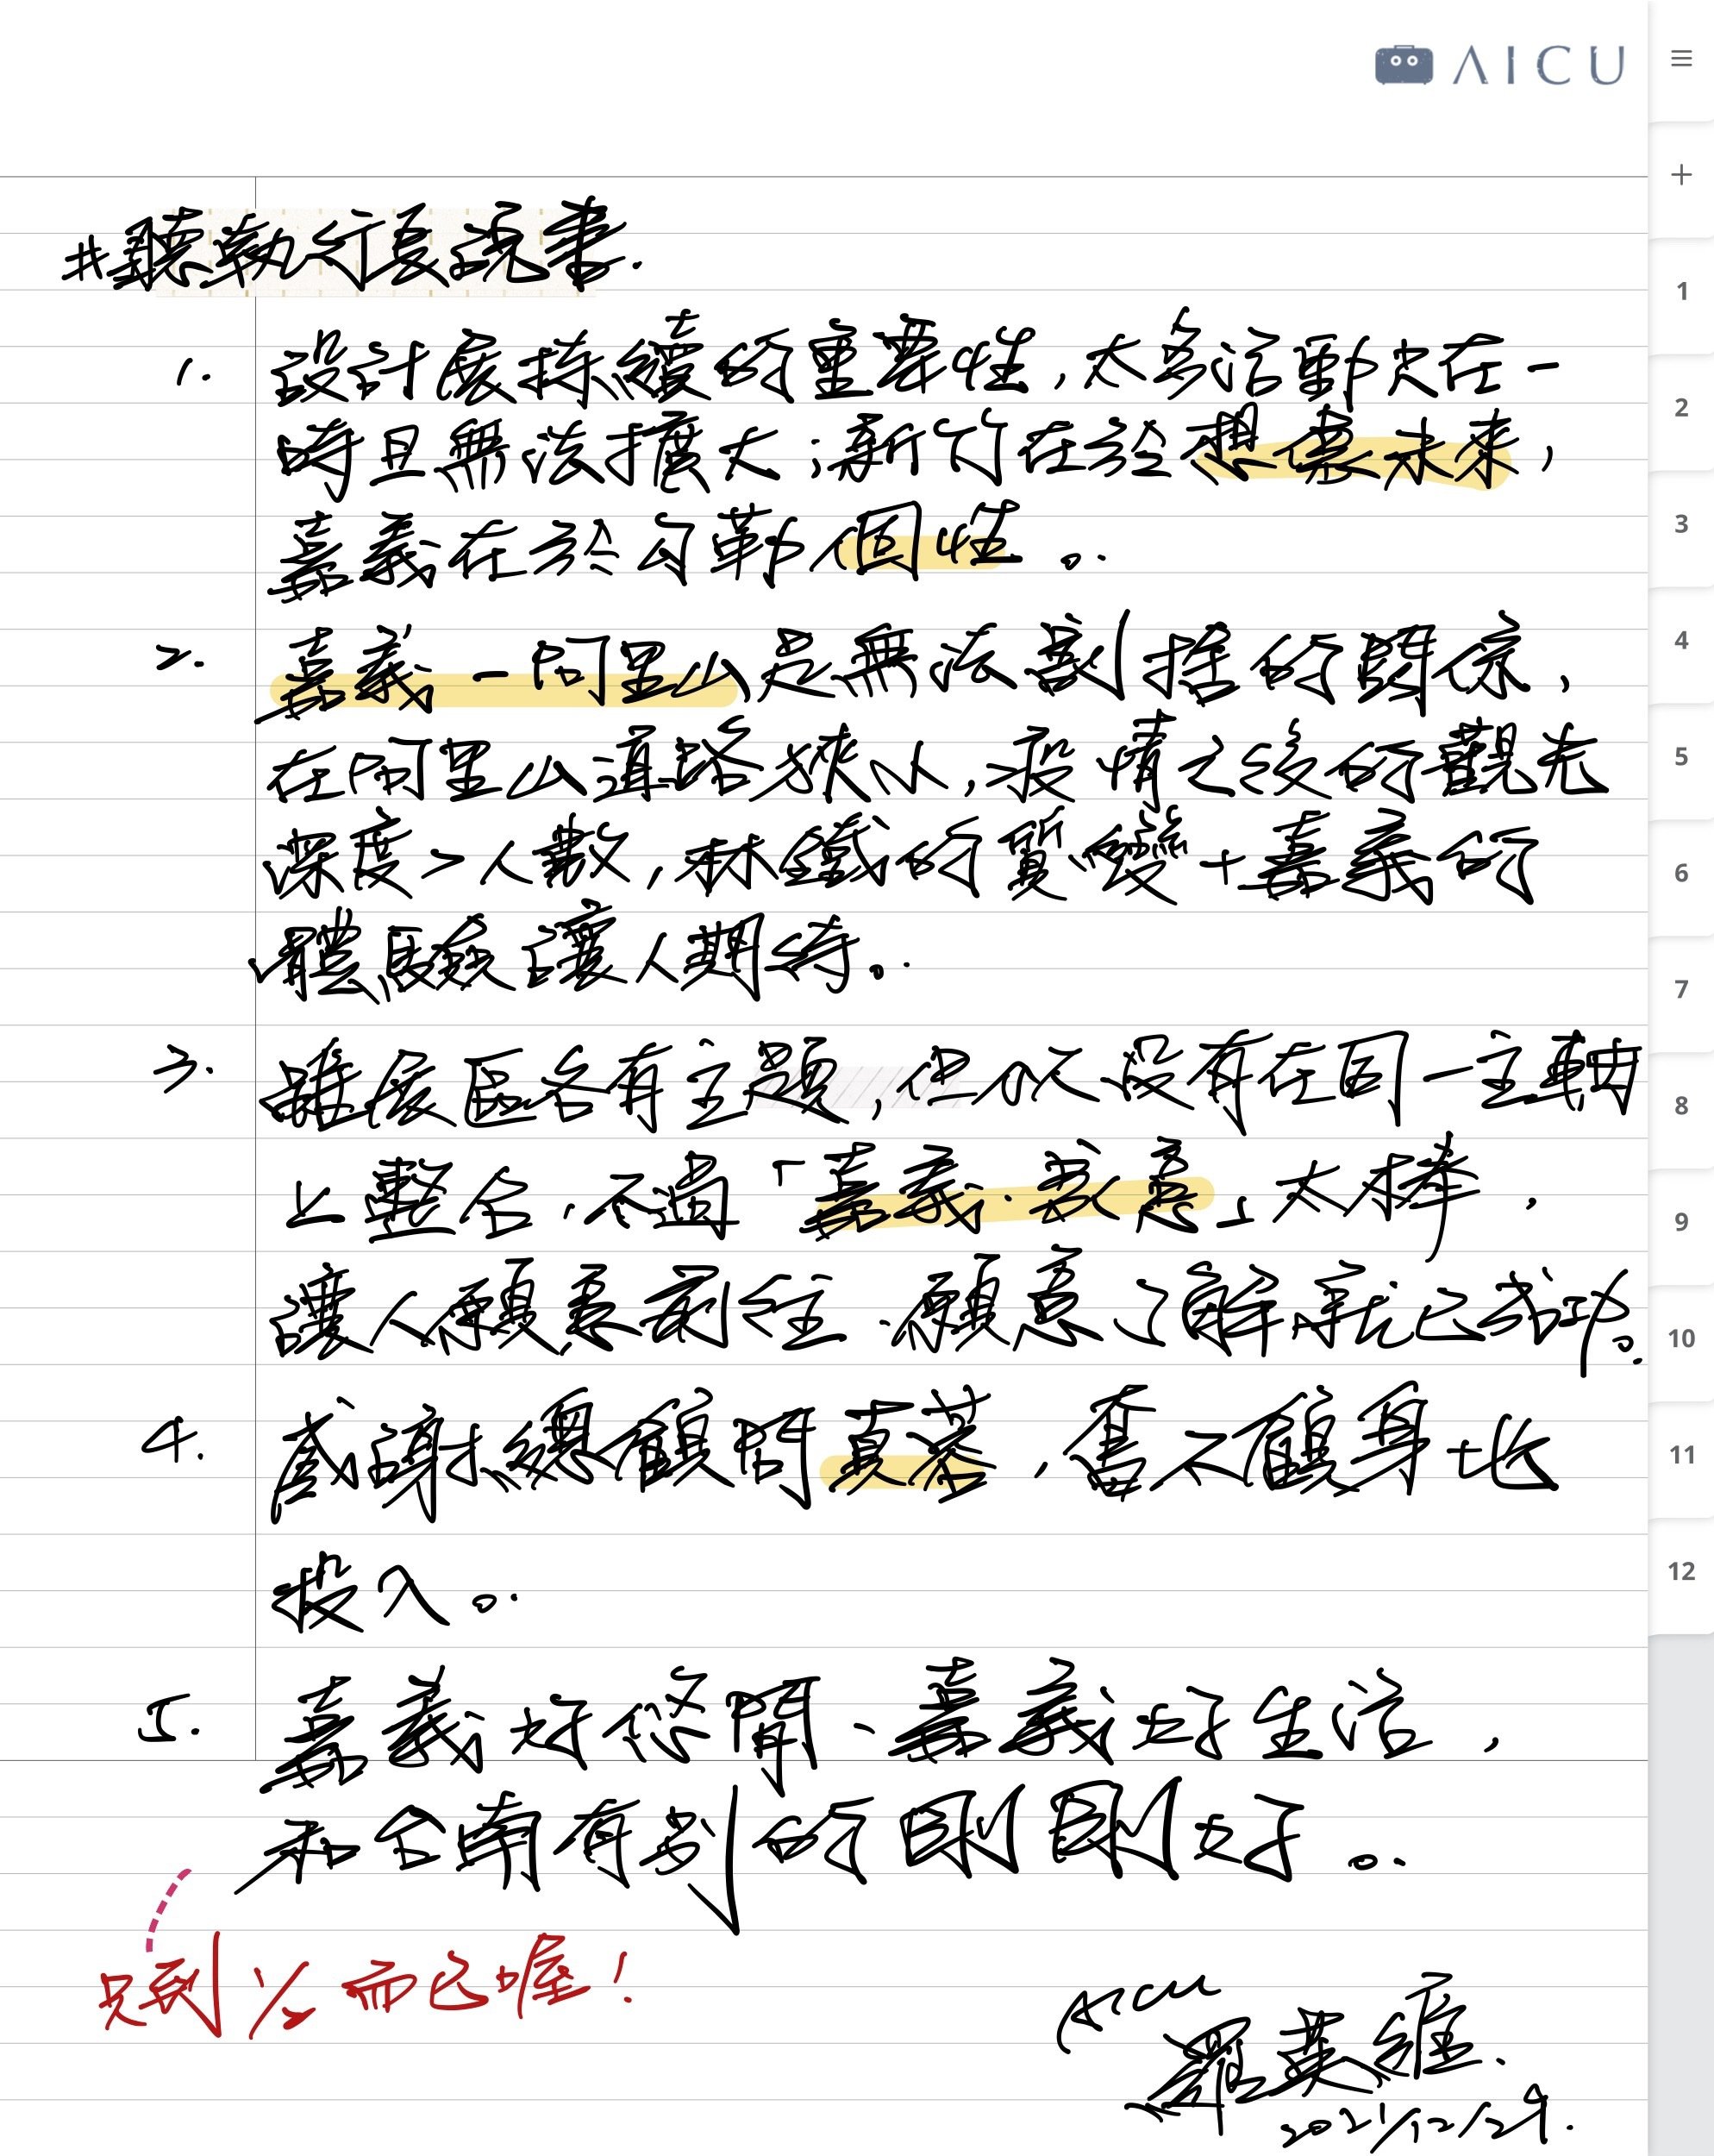 AICU
#聽執行長說書.
1. 設計展持續的重要性,太多活動只在一
時且無法擴大;新竹在於想像未來,
嘉義在於勾勒個性。
2. 嘉義-阿里山是無法割捨的關係,
在阿里山道路狹小,疫情之後的觀光
深度>人數,林鐵的質變+嘉義的
體驗讓人期待。
3. 雖展區各有主題,但似乎沒有在同一主軸
上整合.不過「嘉義.我意」太棒,
讓人願意前往.願意了解就已成功。
4. 感謝總顧問真蓉,奮不顧身地
投入。
5. 嘉義好悠閒、嘉義好生活,
和台南有別的剛剛好。
只到1/2而已喔!
AICU
羅英維.
2021/12/29.
1
2
3
4
5
6
7
8
9
10
11
12